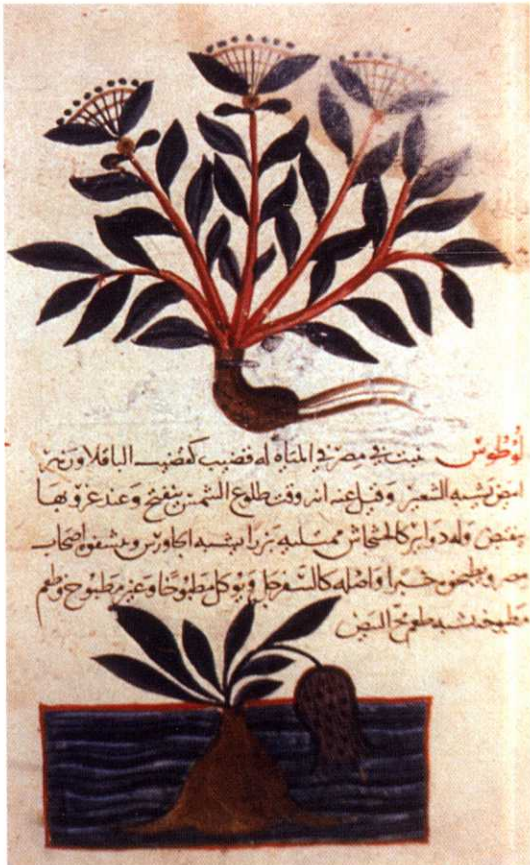 لوطوس ينبت في مصر في المياه له قضيب كقضيب الباقلا وزهر
ابيض يشبه الشعير وقيل عنه انه وقت طلوع الشمس ينفتح وعند غروبها
ينقبض وله دواير كالخشاش ممتليه بزرا يشبه الجاورس ويشفوه اصحاب
مصر ويطبخوه خبزا واصله كالسفرجل ويوكل مطبوخا وغير مطبوخ وطعم
مطبوخه يشبه طعم مح البيض